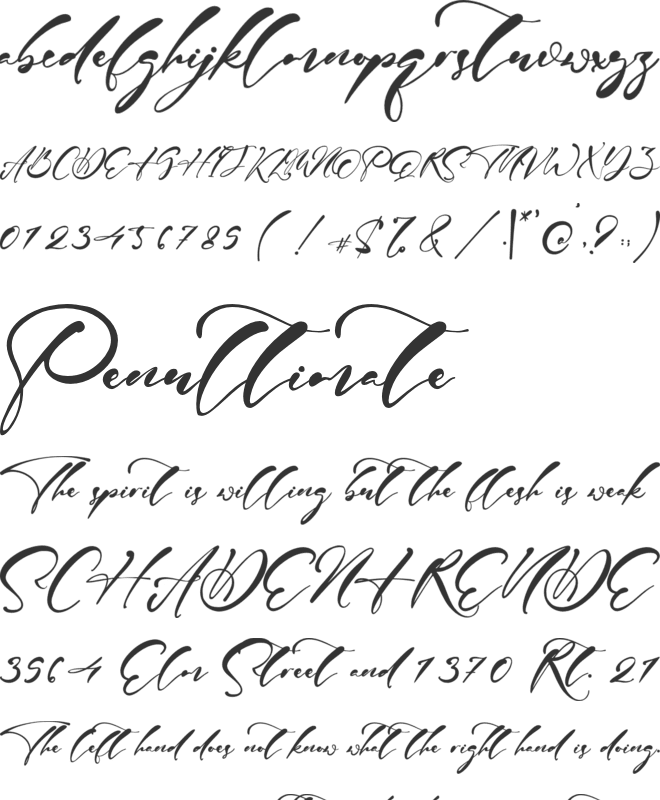 abcdefghijklmnopqrstuvwxyz
ABCDEFGHIJKLMNOPQRSTUVWXYZ
0123456789 ( ! #$%& / .|*' @ , ? : ; )
Penultimate
The spirit is willing but the flesh is weak
SCHADENFREUDE
3564 Elm Street and 1370 Rt. 21
The left hand does not know what the right hand is doing.